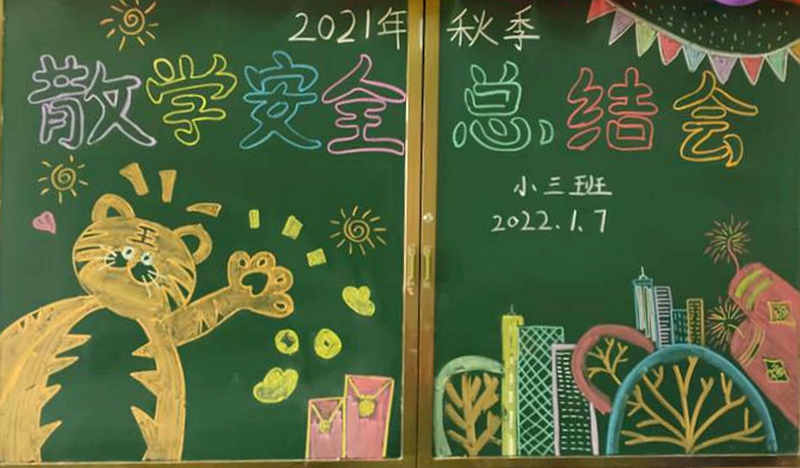 2021年 秋季
散学安全总结会
小三班
2022.1.7
王